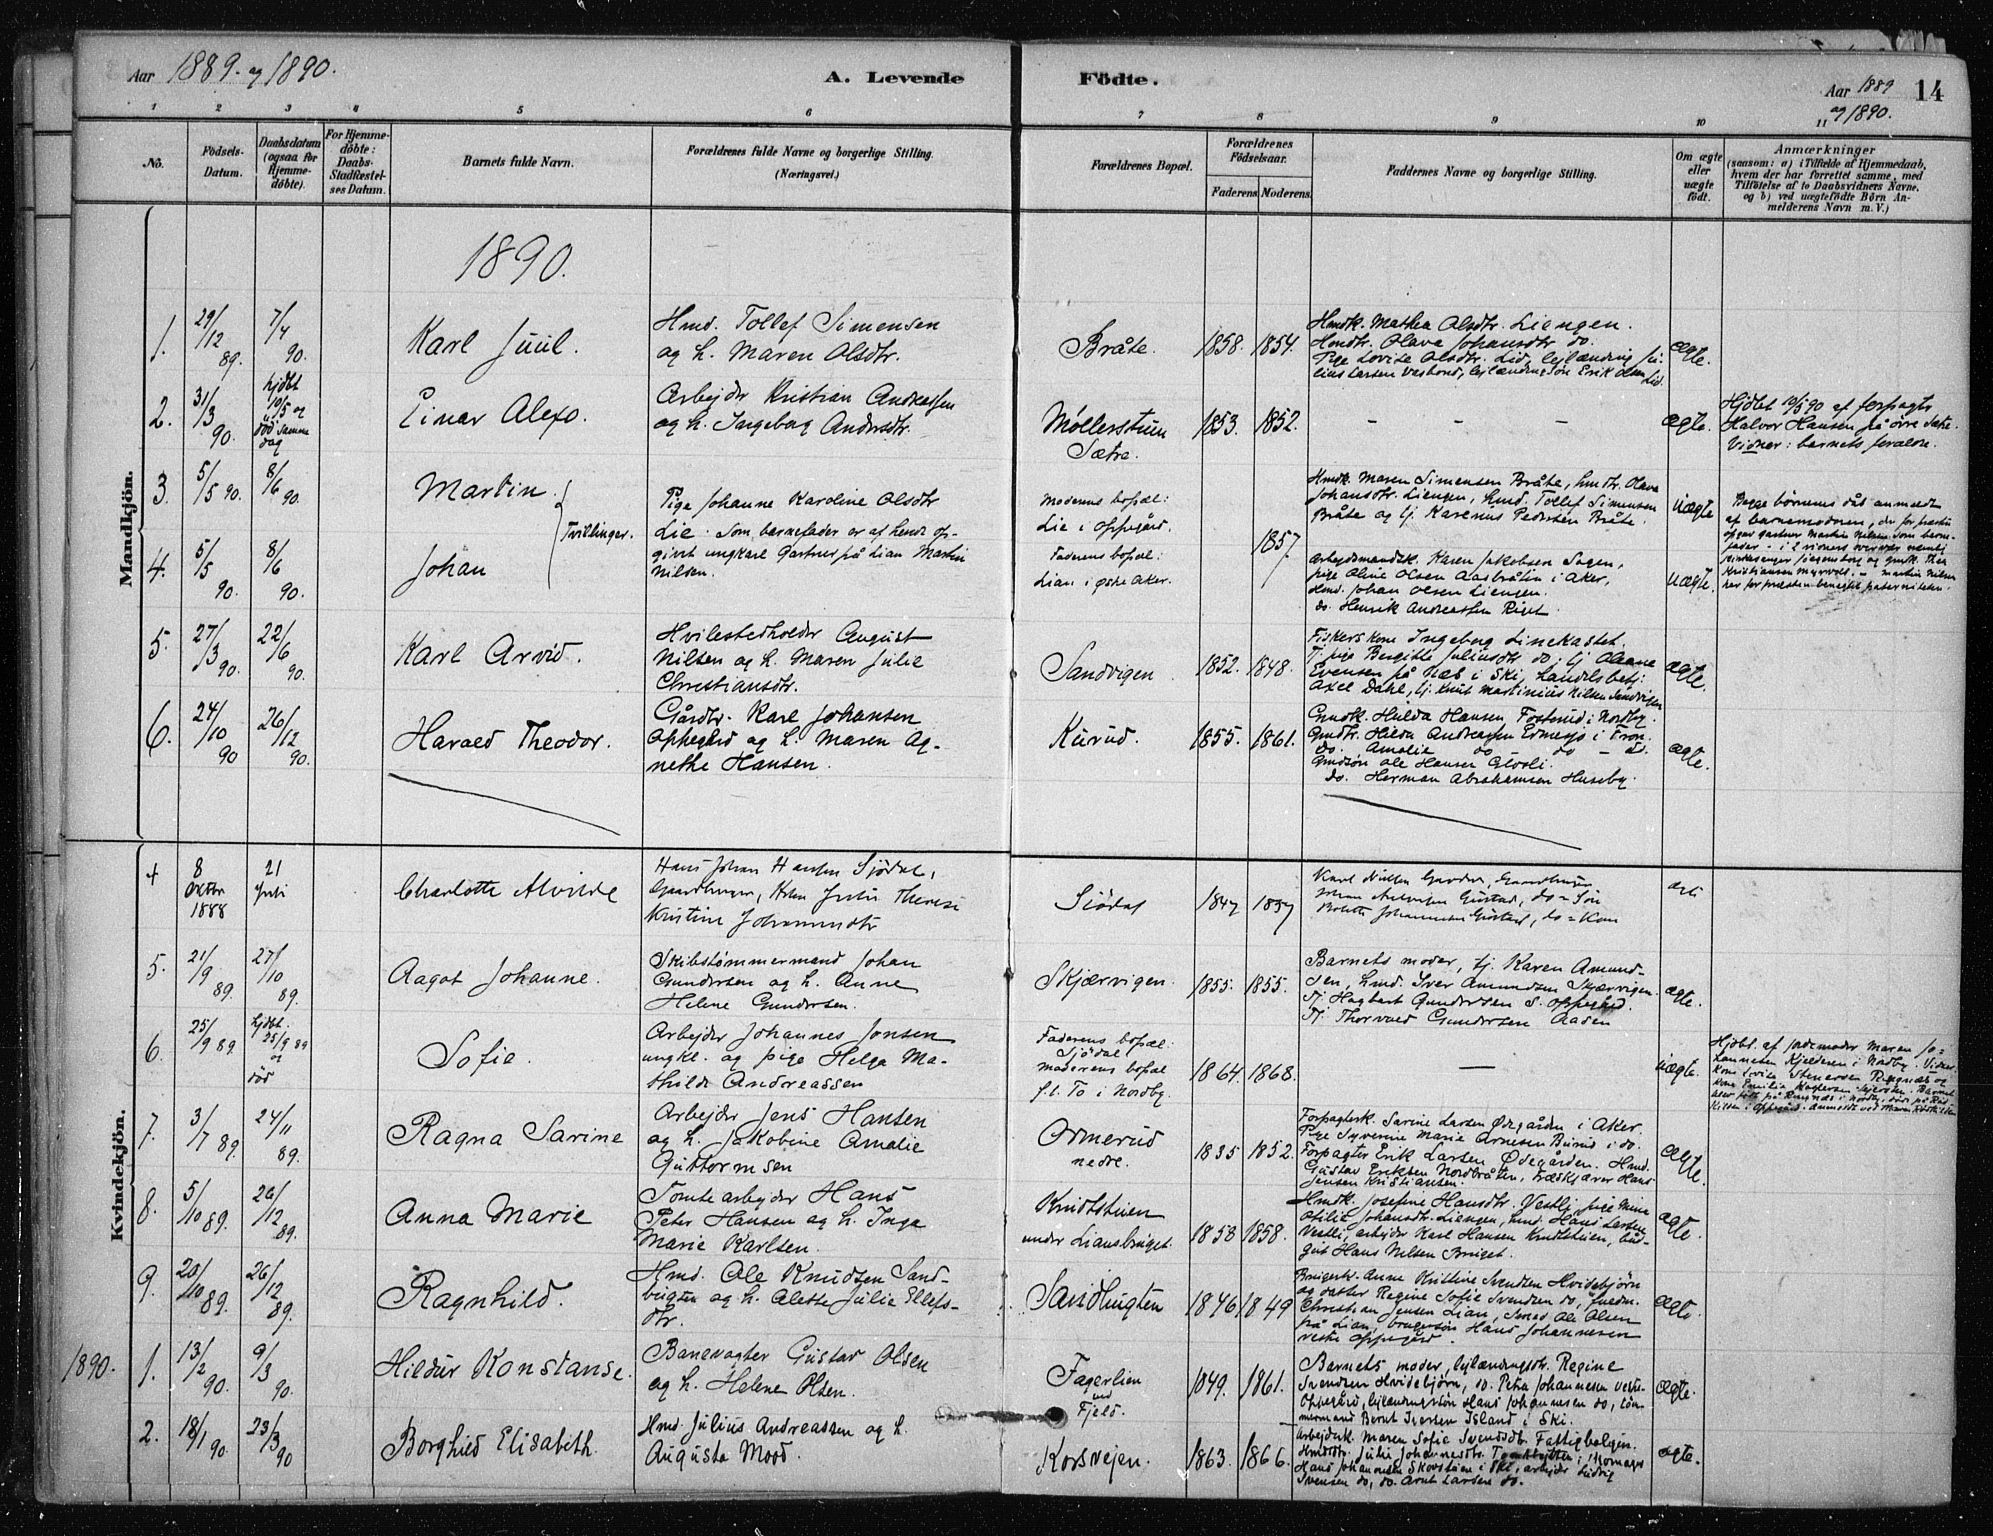 Aar 1889. og 1890.
A. Levende Födte.
Aar 1889 og 1890.
14
1 2 3 4 5 6 7 8 9 10 11
No.
Födsels-Datum.
Daabsdatum (ogsaa for Hjemmedöbte).
For Hjemmedöbte: Daabs-Stadfæstelses Datum.
Barnets fulde Navn.
Forældrenes fulde Navne og borgerlige Stilling.
(Næringsvei.)
Forældrenes Bopæl.
Forældrenes Födselsaar.
Faderens. Moderens.
Faddernes Navne og borgerlige Stilling.
Om ægte eller uægte födt.
Anmærkninger
(saasom: a) i Tilfælde af Hjemmedaab, hvem der har forrettet samme, med Tilföielse af to Daabsvidners Navne, og b) ved uægtefödte Börn Anmelderens Navn m. V.)
Mandkjön.
1890.
1. 29/12 89. 7/4 90. Karl Juul.
Hmd. Tollef Simensen
og h. Maren Olsdtr.
Bråte. 1858. 1854.
Hmdk. Mathea Olsdtr. Liengen.
Hmdtr. Olava Johansdtr. do.
Pige Lovise Olsdtr. Lid, lejlænding Julius Larsen Vasbond, lejlændingssøn Erik Olsen Lid.
ægte.
2. 31/3 90. hjdbt 10/5 og død samme dag
Einar Alexo.
Arbejder Kristian Andreassen
og h. Ingeborg Andersdtr.
Møllerstuen
Sætre.
1853. 1852. - - - ægte.
Hjdbt 10/5 90 af forpagter
Halvor Hansen på øvre Sætre.
Vidner: barnets forældre.
3. 5/5 90. 8/6 90. Martin.
Tvillinger.
4. 5/5 90. 8/6 90. Johan
Pige Johanne Karoline Olsdtr
Lie. Som barnefader er af hende opgivet ungkarl Gartner på Lian Martin
Nilsen.
Moderens bopæl:
Lie i Oppegård.
Faderens bopæl:
Lian i Østre Aker.
1857
Hmdk. Maren Simensen Bråte, hmdtr. Olava
Johansdtr. Liengen, hmd. Tollef Simensen
Bråte og tj. Karenius Pedersen Bråte.
Arbejdsmandsk. Karen Jakobsen Sagen,
pige Oline Olsen Aasbråtin i Aker,
Hmd. Johan Olsen Liengen.
do. Henrik Andreassen Riget.
uægte
uægte.
Begge børnens dåb anmeldt
af barnemoderen, der for præsten
opgav gartner Martin Nilsen som barnefader - i 2 vidners overvær nemlig
kirkesanger Jøgensborg og gmk. Thea
Kristiansen Myrvold. - Martin Nilsen
har for præsten benegtet paterniteten.
5. 27/3 90. 22/6 90. Karl Arvid.
Hvilestedholder August
Nilsen og h. Maren Julie
Christiansdtr.
Sandvigen 1852. 1848.
Fiskers kone Ingeborg Linekastet.
Tj. pige Bergitte Juliusdtr do. tj. Oleane
Evensen på Næs i Ski, Landelsbetj:
Axel Dahl, tj. Knut Martinius Nilsen Sandvigen
ægte.
6. 24/10 90 26/12 90. Harald Theodor.
Gårdbr. Karl Johansen
Oppegård og h. Maren Agnethe Hansen.
Kurud. 1855. 1861.
Gmdk. Hulda Hansen, Fosterud i Nordby.
Gmdtr. Hilda Andreassen Ednesjø i Fron
do. Amalie do - do.
Gmdsøn Ole Hansen Glosli.
do. Herman Abrahamsen Huseby.
ægte.
Kvindekjön.
4 8 Oktbr 1888 21 Juli Charlotte Alvilde
Hans Johan Hansen Sjödal,
Gaardbruger, Kone Julie Therese
Kristine Johannesdtr
Sjödal 1847 1857
Karl Nilsen
Gustad, do = Søn
Johannesen Gustad, do = Kone
5. 21/9 89. 27/10 89. Aagot Johanne.
Skibstømmermand Johan
Gundersen og h. Anne
Helene Gundersen.
Skjærvigen. 1855. 1855.
Barnets moder, tj. Karen Amundsen, hmd. Iver Amundsen Skjærvigen.
Tj. Hagbart Gundersen S. Oppegård
Tj. Thorvald Gundersen Aasen
ægte.
6. 25/9 89. hjdbt. 25/9 89 og død
Sofie.
Arbejder Johannes Jonsen
ungkl. og pige Helga Mathilde Andreassen
Faderens bopæl:
Sjödal
moderens bopæl
f.t. To i Nordby.
1864. 1868. — uægte.
Hjdbt. af jordemoder Maren Johannesen Kjelderen i Nordby. Vidner
7. 3/7 89. 24/11 89. Ragna Sarine
Arbejder Jens Hansen
og h. Jakobine Amalie
Guttormsen
Ormerud
nedre.
1835 1852.
Forpagterk. Sarine Larsen Ødegården i Aker.
Pige Syverine Marie Arnesen Bunid i do.
Forpagter Erik Larsen Ødegården. Hmd.
Gustav Eriksen Nordbråten, Træskjærer Hans
Jensen Kristiansen.
ægte.
8. 5/10 89. 26/12 89. Anna Marie
Tomtearbejder Hans
Peter Hansen og h. Inga
Marie Karlsen.
Knudtstuen
under Liansbruget.
1858 1858.
Hmdk. Josefine Hansdtr. Vestli, pige Mina
Otilie Johansdtr. Liengen, hmd. Hans Larsen
Vestli, arbejder Karl Hansen Knudtstuen, bådgut Hans Nilsen Bruget.
ægte.
9. 20/10 89. 26/12 89. Ragnhild.
Hmd. Ole Knudsen Sandbugten og h. Alette Julie Ellefsdtr.
Sandbugten 1846 1849
Brugerk. Anne Kristine Svendsen Hvidebjørn
og datter Regine Sofie Svendsen do, fuldm.
Christian Jensen Lian, Smed Ole Olsen
på Lian, brugersøn Hans Johannesen
vestre Oppegård.
ægte.
1890. 1. 13/2 90. 9/3 90. Hildur Konstanse.
Banevogter Gustav Olsen
og h. Helene Olsen.
Fagerlien
ved
Fjeld.
1849. 1861.
Barnets moder, lejlændingdtr. Regine
Svendsen Hvidebjørn, do. Petra Johannesen vestre
Oppegård, lejlændingsøn Hans Johannesen do, tømmermand Bernt Iversen Island i Ski.
ægte.
2. 18/1 90. 23/3 90 Borghild Elisabeth.
Hmd. Julius Andreassen og h.
Augusta Mood.
Korsvejen. 1863. 1866.
Arbejderk. Maren Sofie Svendsdtr. Fattigboligen.
Hmdtr. Julie Johannesdtr. Tomthytten; skomager
Hans Johannesen Skovstuen i Ski, arbejder Ludvig
Svensen do, do. Arnt Larsen do.
ægte.